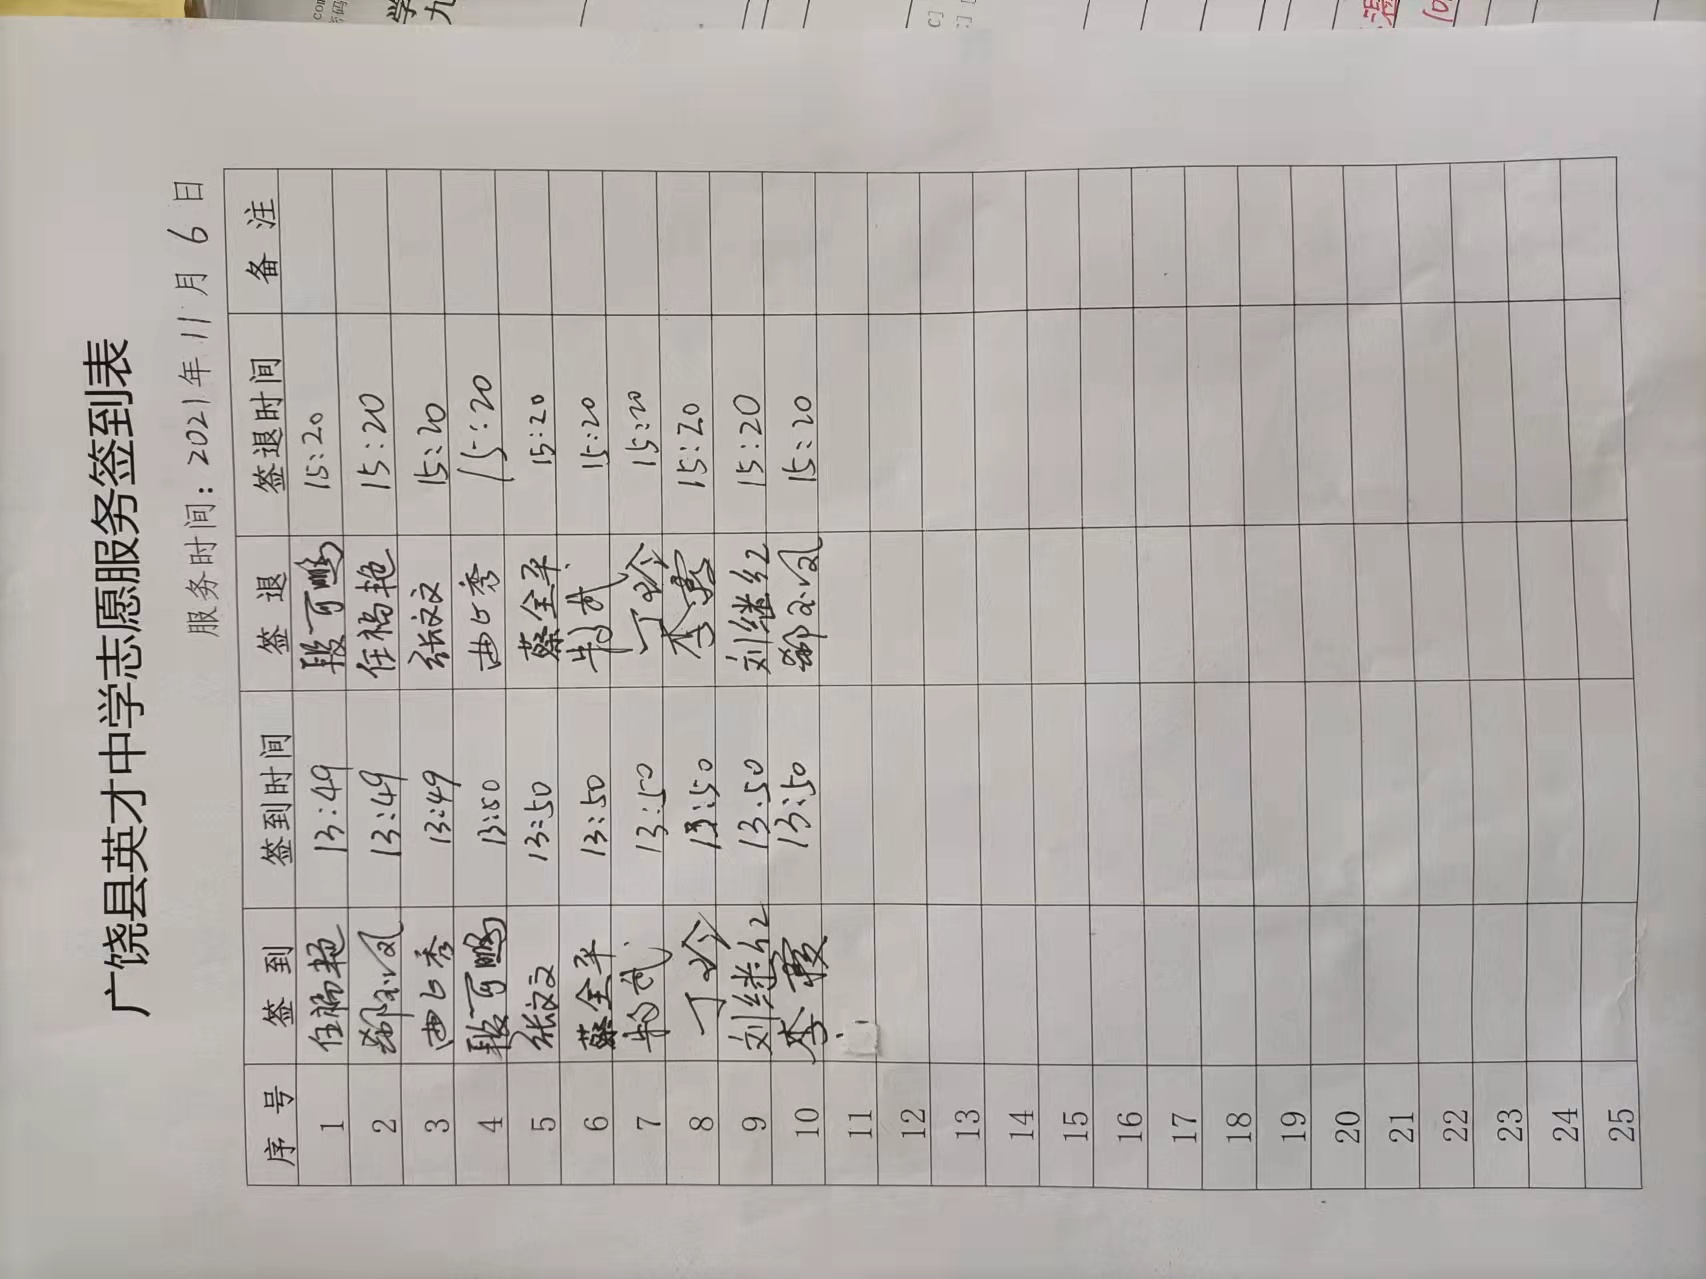 广饶县英才中学志愿服务签到表
服务时间：2021年 11 月 6 日
序 号 签 到 签到时间 签 退 签退时间 备 注
1 任福艳 13:49 段可鹏 15:20
2 13:49 任福艳 15:20
3 13:49 张文文 15:20
4 段可鹏 13:50 15:20
5 张文文 13:50 蔡全平 15:20
6 蔡全平 13:50 15:20
7 13:50 丁玲 15:20
8 丁玲 13:50 李霞 15:20
9 刘继红 13.50 刘继红 15:20
10 李霞 13:50 15:20
11
12
13
14
15
16
17
18
19
20
21
22
23
24
25